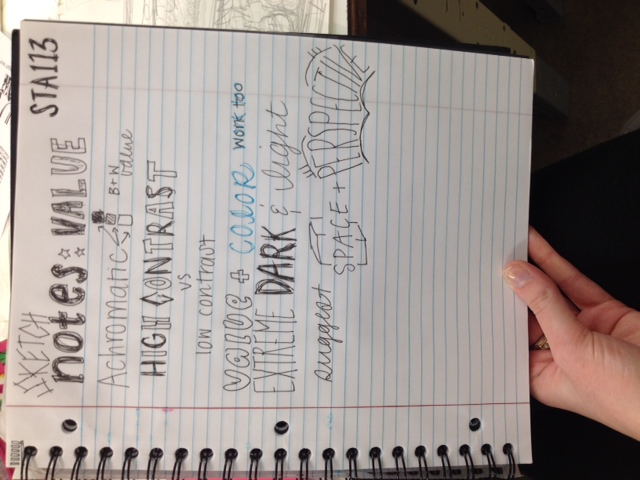 SKETCH
STA113
notes: VALUE
Achromatic B+W value
HIGH CONTRAST
vs
low contrast
value + COLOR work too
EXTREME DARK & light
suggest SPACE + PERSPECTIVE